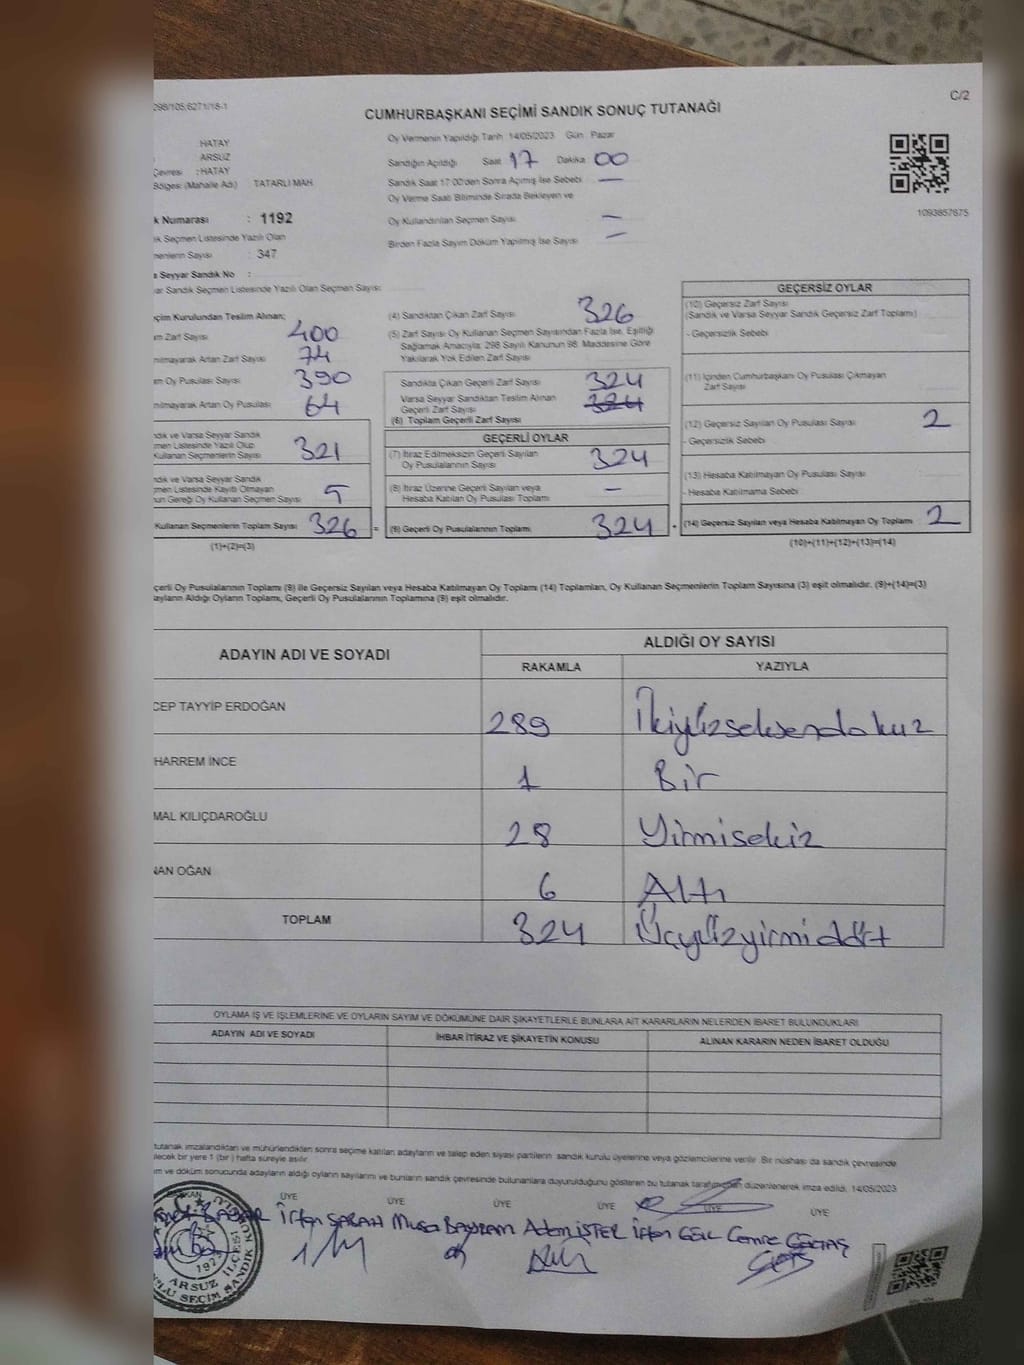 298/105;6271/18-1
C/2
CUMHURBAŞKANI SEÇİMİ SANDIK SONUÇ TUTANAĞI
HATAY
ARSUZ
Çevresi : HATAY
Bölgesi (Mahalle Adı) TATARLI MAH.
k Numarası : 1192
k Seçmen Listesinde Yazılı Olan
menlerin Sayısı : 347
a Seyyar Sandık No :
ar Sandık Seçmen Listesinde Yazılı Olan Seçmen Sayısı:
Oy Vermenin Yapıldığı Tarih 14/05/2023 Gün Pazar
Sandığın Açıldığı Saat 17 Dakika 00
Sandık Saat 17:00'den Sonra Açılmış İse Sebebi —
Oy Verme Saati Bitiminde Sırada Bekleyen ve
Oy Kullandırılan Seçmen Sayısı —
Birden Fazla Sayım Döküm Yapılmış İse Sayısı —
1093857675
çim Kurulundan Teslim Alınan;
m Zarf Sayısı 400
nılmayarak Artan Zarf Sayısı 74
m Oy Pusulası Sayısı 390
nılmayarak Artan Oy Pusulası 64
ndık ve Varsa Seyyar Sandık
men Listesinde Yazılı Olup
Kullanan Seçmenlerin Sayısı 321
ndık ve Varsa Seyyar Sandık
men Listesinde Kayıtlı Olmayan
un Gereği Oy Kullanan Seçmen Sayısı 5
Kullanan Seçmenlerin Toplam Sayısı 326 =
(1)+(2)=(3)
(4) Sandıktan Çıkan Zarf Sayısı 326
(5) Zarf Sayısı Oy Kullanan Seçmen Sayısından Fazla İse, Eşitliği
Sağlamak Amacıyla, 298 Sayılı Kanunun 98. Maddesine Göre
Yakılarak Yok Edilen Zarf Sayısı
Sandıkta Çıkan Geçerli Zarf Sayısı 324
Varsa Seyyar Sandıktan Teslim Alınan
Geçerli Zarf Sayısı 324
(6) Toplam Geçerli Zarf Sayısı
GEÇERLİ OYLAR
(7) İtiraz Edilmeksizin Geçerli Sayılan
Oy Pusulalarının Sayısı 324
(8) İtiraz Üzerine Geçerli Sayılan veya
Hesaba Katılan Oy Pusulası Toplamı —
(9) Geçerli Oy Pusulalarının Toplamı 324 +
GEÇERSİZ OYLAR
(10) Geçersiz Zarf Sayısı
(Sandık ve Varsa Seyyar Sandık Geçersiz Zarf Toplamı)
- Geçersizlik Sebebi
(11) İçinden Cumhurbaşkanı Oy Pusulası Çıkmayan
Zarf Sayısı
(12) Geçersiz Sayılan Oy Pusulası Sayısı 2
- Geçersizlik Sebebi
(13) Hesaba Katılmayan Oy Pusulası Sayısı
- Hesaba Katılmama Sebebi
(14) Geçersiz Sayılan veya Hesaba Katılmayan Oy Toplamı 2
(10)+(11)+(12)+(13)=(14)
çerli Oy Pusulalarının Toplamı (9) ile Geçersiz Sayılan veya Hesaba Katılmayan Oy Toplamı (14) Toplamları, Oy Kullanan Seçmenlerin Toplam Sayısına (3) eşit olmalıdır. (9)+(14)=(3)
ayların Aldığı Oyların Toplamı, Geçerli Oy Pusulalarının Toplamına (9) eşit olmalıdır.
ADAYIN ADI VE SOYADI ALDIĞI OY SAYISI
RAKAMLA YAZIYLA
CEP TAYYİP ERDOĞAN 289 İkiyüzseksendokuz
HARREM İNCE 1 Bir
MAL KILIÇDAROĞLU 28 Yirmisekiz
NAN OĞAN 6 Altı
TOPLAM 324 Üçyüzyirmidört
OYLAMA İŞ VE İŞLEMLERİNE VE OYLARIN SAYIM VE DÖKÜMÜNE DAİR ŞİKAYETLERLE BUNLARA AİT KARARLARIN NELERDEN İBARET BULUNDUKLARI
ADAYIN ADI VE SOYADI İHBAR İTİRAZ VE ŞİKAYETİN KONUSU ALINAN KARARIN NEDEN İBARET OLDUĞU
tutanak imzalandıktan ve mühürlendikten sonra seçime katılan adayların ve talep eden siyasi partilerin sandık kurulu üyelerine veya gözlemcilerine verilir. Bir nüshası da sandık çevresinde
ilecek bir yere 1 (bir) hafta süreyle asılır.
ım ve döküm sonucunda adayların aldığı oyların sayılarını ve bunların sandık çevresinde bulunanlara duyurulduğunu gösteren bu tutanak tarafımızdan düzenlenerek imza edildi. 14/05/2023
KAN ÜYE ÜYE ÜYE ÜYE ÜYE ÜYE
İrfan SARAH Musa BAYRAM Adem İSTER İrfan GSİL Cemre GÖKTAŞ
ARSUZ İLÇESİ
SEÇİM SANDIK KURULU